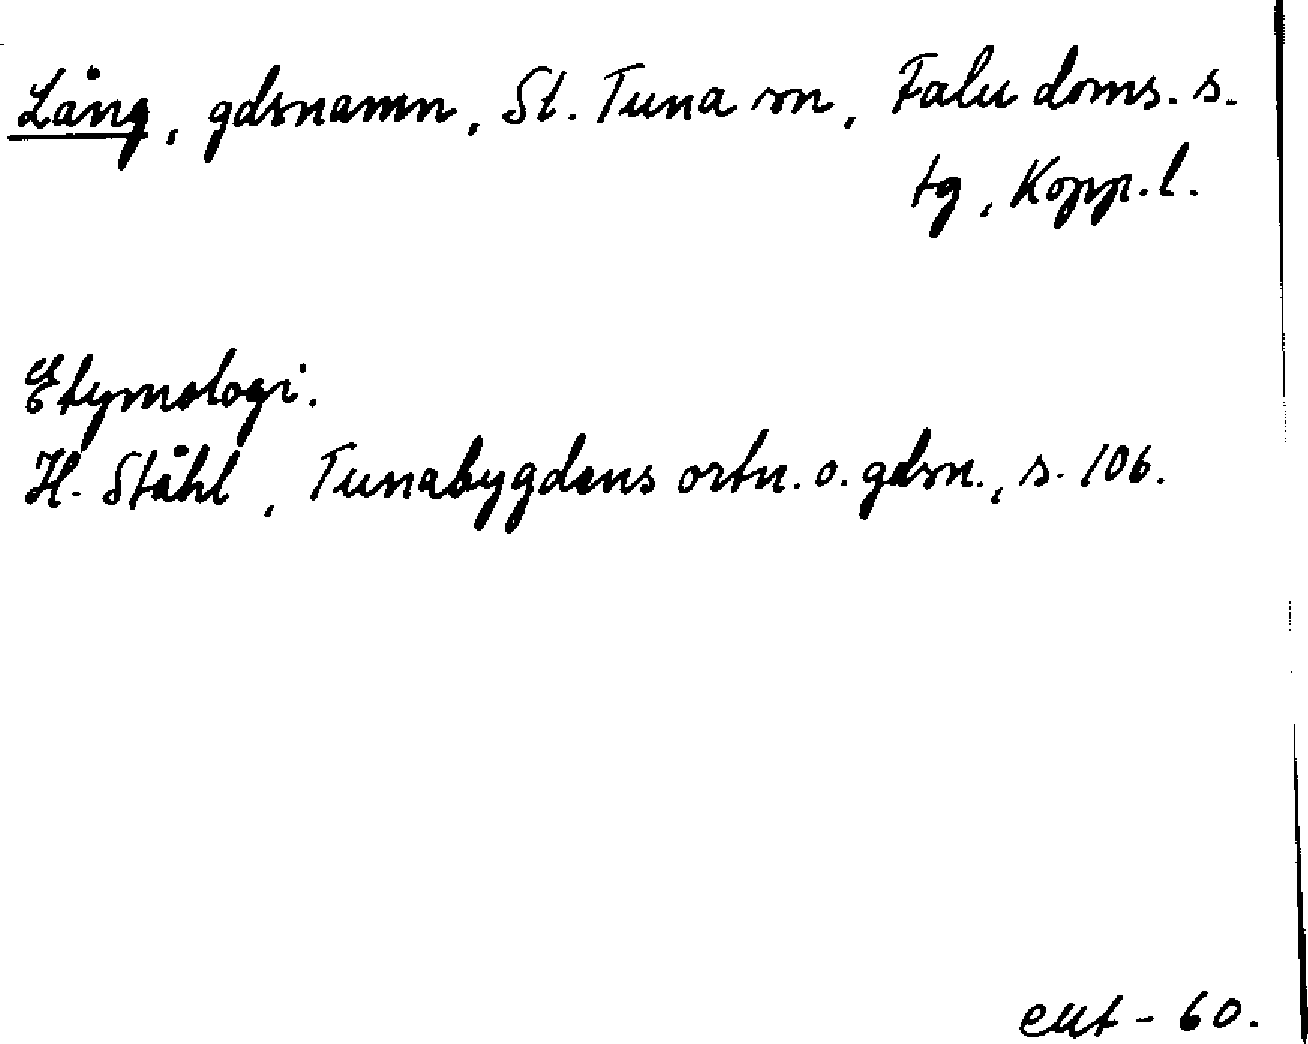 Lång, gdsnamn, St. Tuna sn, Falu doms. s.
tg, Kopp.l.
Etymologi.
H. Ståhl, Tunabygdens ortn. o. gdsn., s. 106.
- 60.